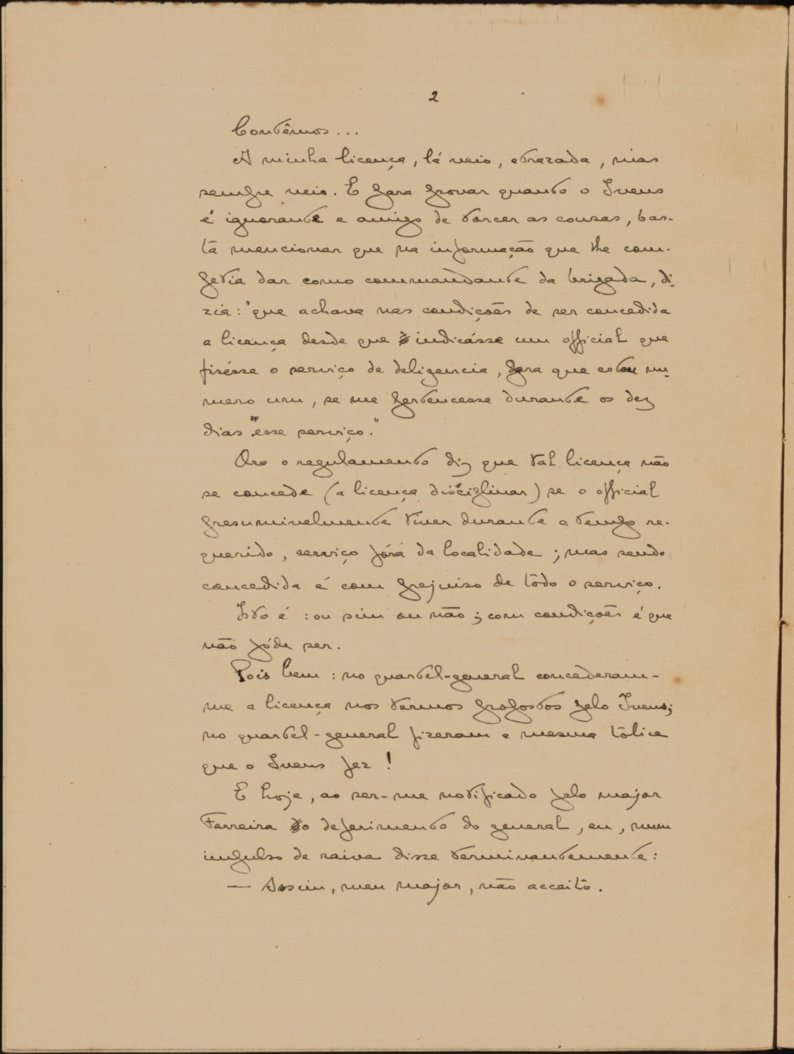 2
Contêmos...
A minha licença, lá veio, atrazada, mas
sempre veio. E para provar quanto o Ivens
é ignorante e amigo de torcer as cousas, bas-
ta mencionar que na informação que lhe com-
petia dar como commandante da brigada, di-
zia: "que achava nas condições de ser concedida
a licença desde que indicásse um official que
fizésse o serviço de deligencia, para que estou nu-
mero um, se me pertencesse durante os dez
dias esse serviço."
Ora o regulamento diz que tal licença não
se concede (a licença disciplinar) se o official
presumivelmente tiver durante o tempo re-
querido, serviço fóra da localidade; mas sendo
concedida é com prejuiso de tôdo o serviço.
Isto é: ou sim ou não; com condições é que
não póde ser.
Pois bem: no quartel-general concederam-
me a licença nos termos propostos pelo Ivens;
no quartel-general fizeram a mesma tôlice
que o Ivens fez!
E hoje, ao ser-me notificado pelo major
Ferreira o deferimento do general, eu, num
impulso de raiva disse terminantemente:
— Assim, meu major, não acceito.